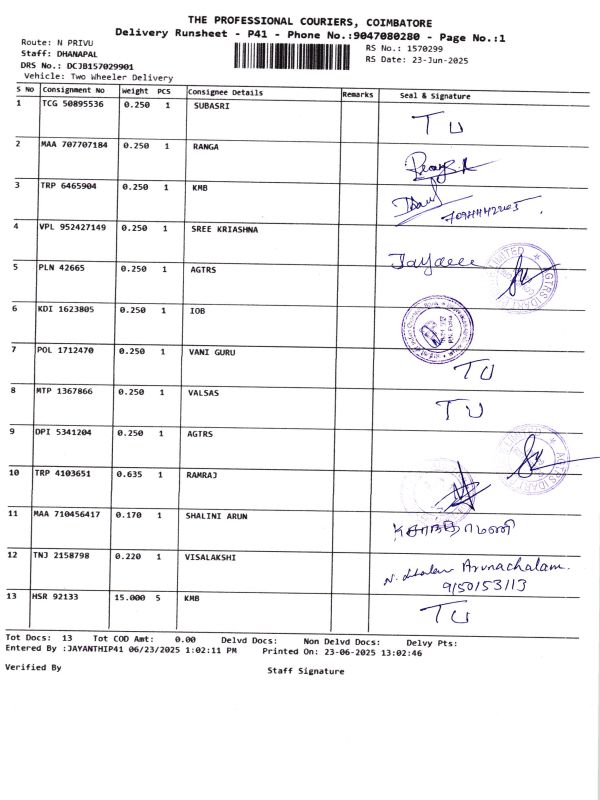 THE PROFESSIONAL COURIERS, COIMBATORE
Delivery Runsheet - P41 - Phone No.:9047080280 - Page No.:1
Route: N PRIVU
Staff: DHANAPAL
DRS No.: DCJB157029901
Vehicle: Two Wheeler Delivery
RS No.: 1570299
RS Date: 23-Jun-2025
S No Consignment No Weight PCS Consignee Details Remarks Seal & Signature
1 TCG 50895536 0.250 1 SUBASRI TU
2 MAA 707707184 0.250 1 RANGA
3 TRP 6465904 0.250 1 KMB
4 VPL 952427149 0.250 1 SREE KRIASHNA
5 PLN 42665 0.250 1 AGTRS
6 KDI 1623805 0.250 1 IOB
7 POL 1712470 0.250 1 VANI GURU TU
8 MTP 1367866 0.250 1 VALSAS TU
9 DPI 5341204 0.250 1 AGTRS
10 TRP 4103651 0.635 1 RAMRAJ
11 MAA 710456417 0.170 1 SHALINI ARUN
12 TNJ 2158798 0.220 1 VISALAKSHI Arunachalam.
9150153113
13 HSR 92133 15.000 5 KMB TU
Tot Docs: 13 Tot COD Amt: 0.00 Delvd Docs: Non Delvd Docs: Delvy Pts:
Entered By :JAYANTHIP41 06/23/2025 1:02:11 PM Printed On: 23-06-2025 13:02:46
Verified By Staff Signature